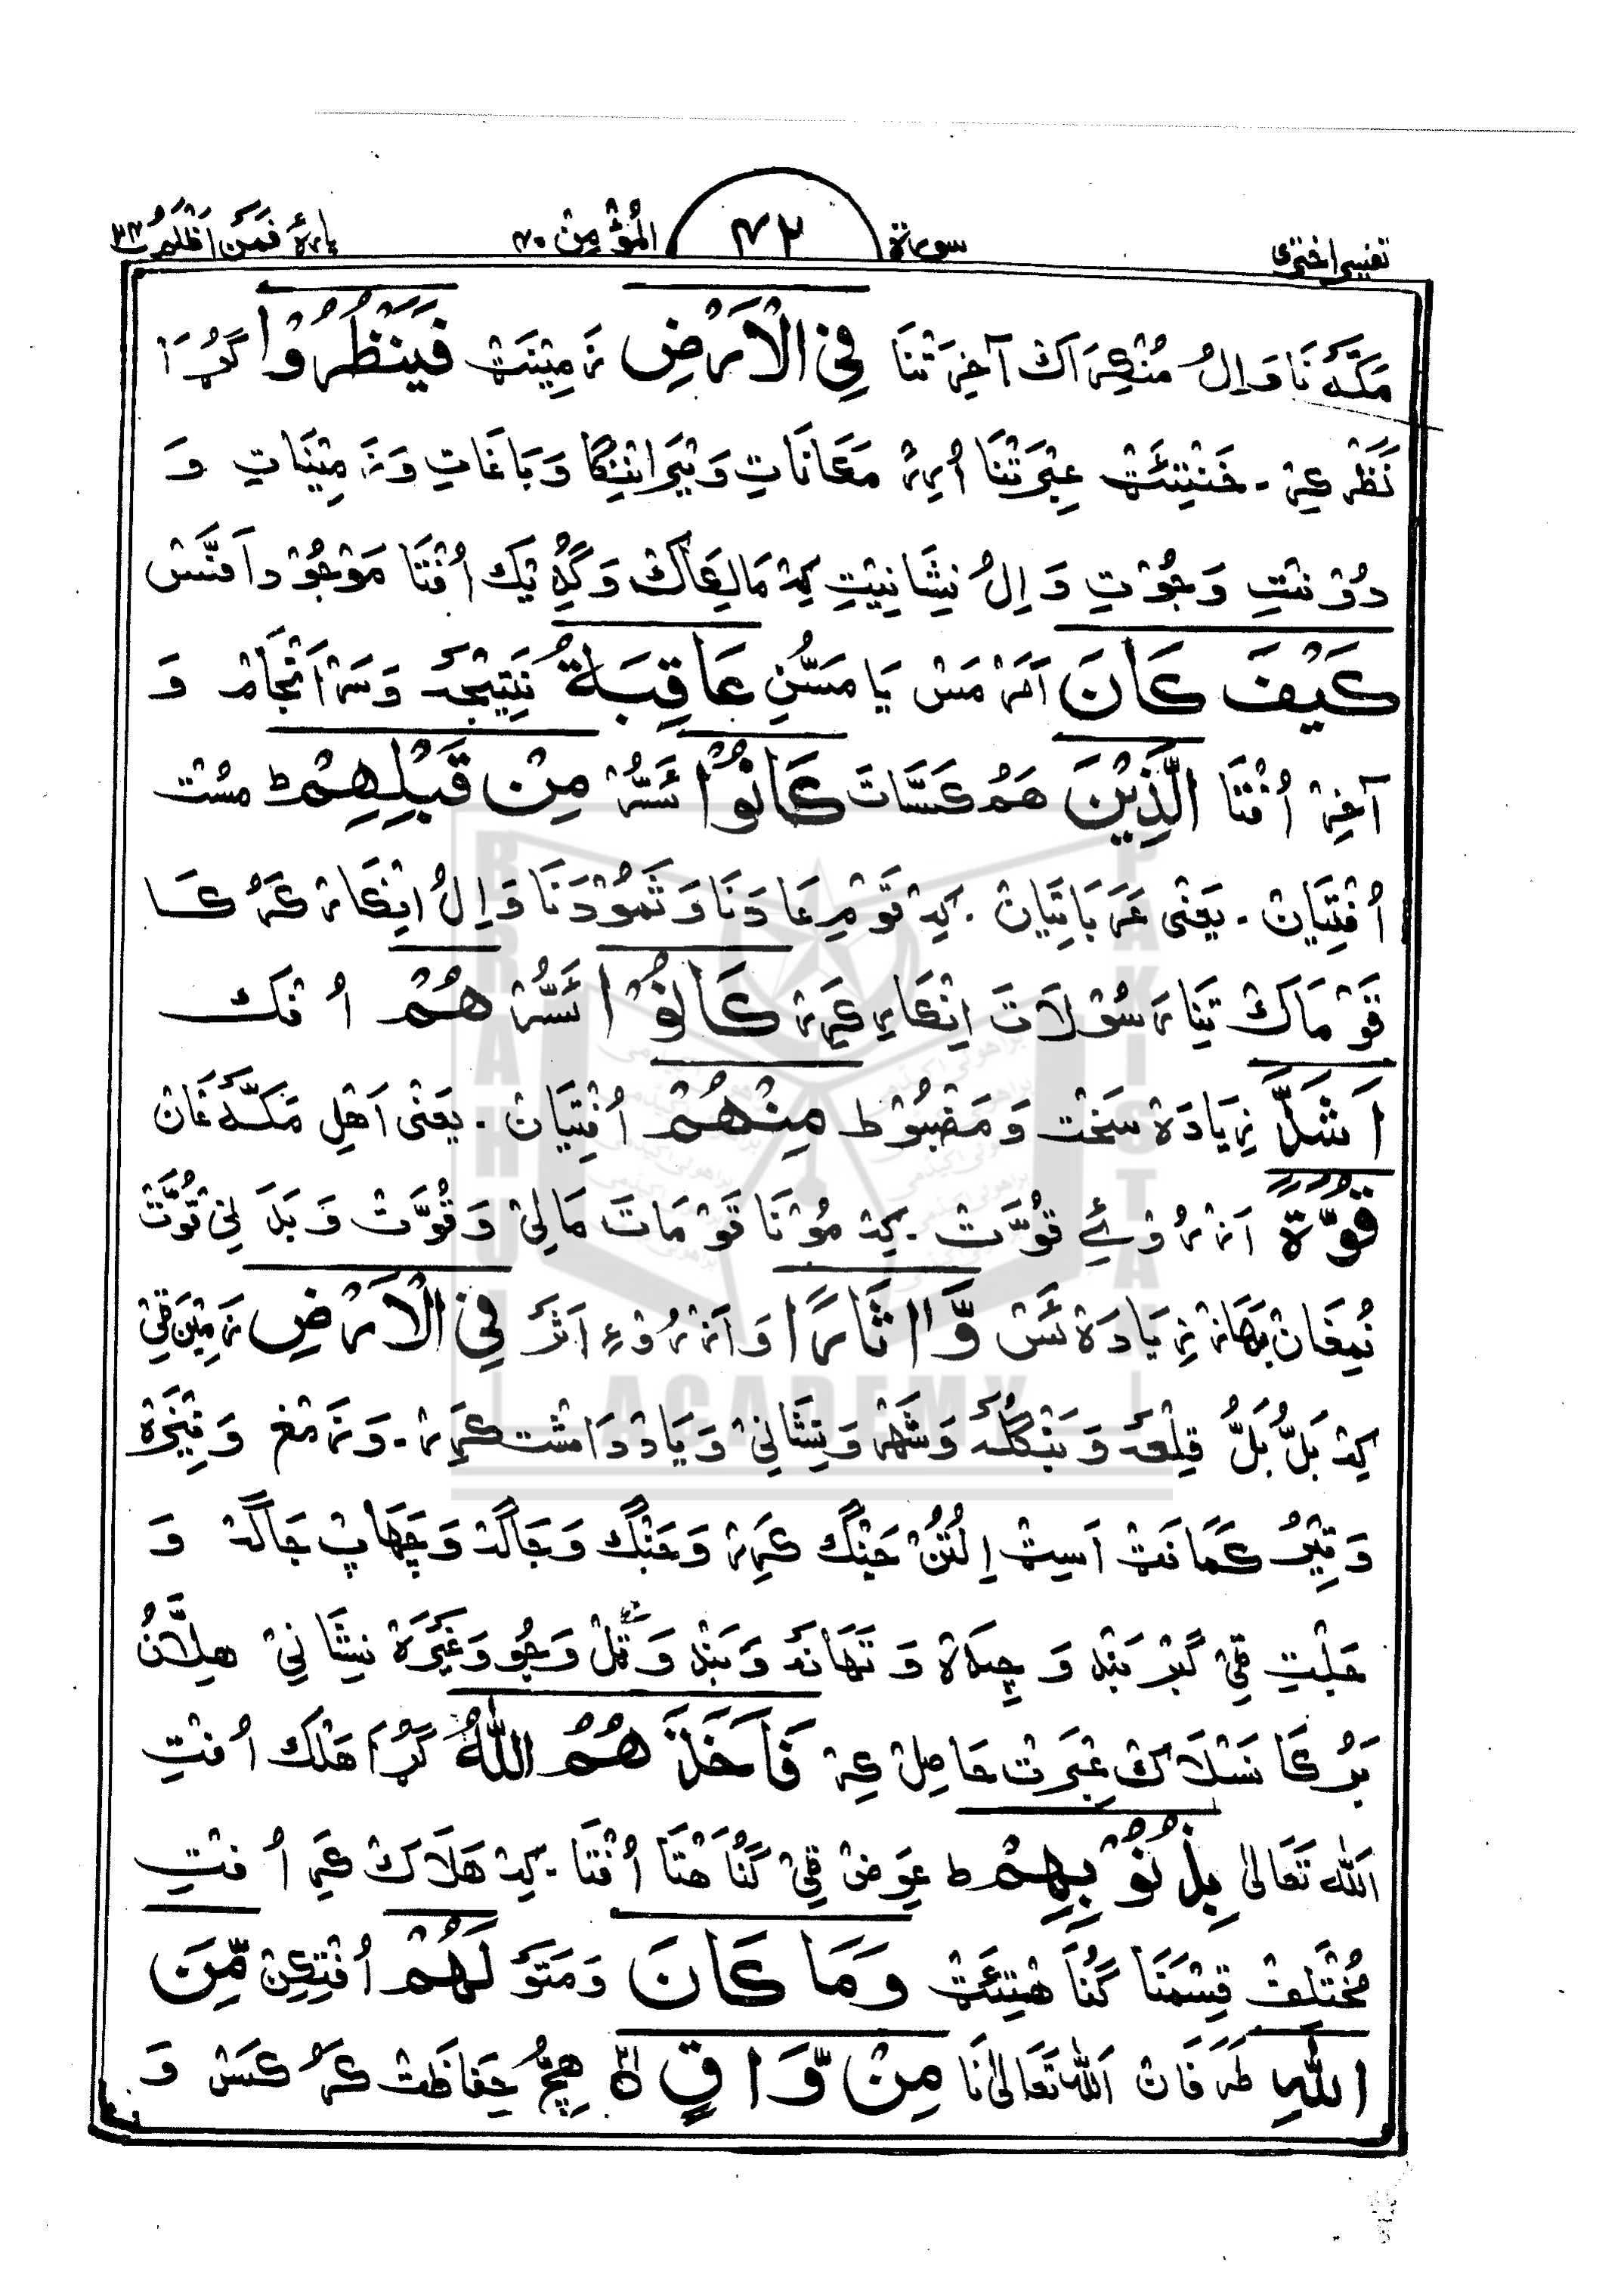 تفسیر اختری سورة ۷۲ المؤمن ۴۰ پارهٔ فمن اظلم ۲۴
مَکَّہ نَا وَ اِلُ مُنْکِرَاک آخِرَتْنَا فِی الْاَرْضِ زَمِیْنَٹ فَیَنْظُرُوْا گُڑَا
نَظْر کِرْ۔ خَنْتِیْئَٹ عِبْرَتْنَا اُرِئ مَکَانَاتِ وَ وَبَاغَاتِ وَ زَمِیْنَاتِ وَ
وَ جُوْتِ وَ اِلُ نِشَانِیْتِ کِہْ مَالِکَاکْ وَ اُفْتَا مَوْجُوْد اَفَّسْ
کَیْفَ کَانَ اَمَرْ مَسْ یَا مَسُّنِ عَاقِبَةُ نَتِیْجَہ وَ سَرْاَنْجَامْ وَ
آخِرْ اُفْتَا الَّذِیْنَ ھَمُ کَسَّاتَ کَانُوْا ئَسُّرْ مِنْ قَبْلِھِمْ ط مُسْت
اُفْتِیَان۔ یَعْنِی عَرَبَاتِیَانْ۔ کِہْ قَوْمِ عَادَنَا وَ ثَمُوْدَنَا وَ اِلُ اِنْکَار کَرُکَا
قَوْمَاکْ تِنَا رَسُوْلَاتَ اِنْکَارِ کَرِرْ کَانُوْا ئَسُّرْ ھُمْ اُفْک
اَشَدَّ زِیَادَہ سَخْت وَ مَضْبُوْط مِنْھُمْ اُفْتِیَان۔ یَعْنِی اَھْلِ مَکَّہ غَانْ
قُوَّةً اَزْرُوْئے قُوَّت۔ کِہْ مُوْنَا قَوْمَاتَ مَالِیْ وَ قُوَّتْ وَ بَدَنِیْ قُوَّتْ
نُمِغَانْ بَھَازْ زِیَادَہ ئَسْ وَّاٰثَارًا وَ اَزْرُوْءِ اَثَر فِی الْاَرْضِ زَمِیْن قِیْ
کِہْ بَلُّ بَلُّ قِلْعَہ وَ بَنْگُلَہ وَ شَھْر وَ نِشَانِیْ وَ یَادْدَاشْت کَرِرْ۔ وَ
وَ کَمَانَٹ اَسِٹ اِلُتُنْ جَنْگ کَرِرْ وَ جَنْگ وَ جَاگَہْ وَ چَھَاپْ جَاگَہ وَ
وَ تَھَانَہ وَ بَنْد وَ وَ جُو وَغَیْرَہ نِشَانِیْ ھِلَّانُ
بَرُکَا نَسْلَاکْ عِبْرَتْ حَاصِلْ کِرْ فَاَخَذَھُمُ اللّٰهُ گُڑَا ھَلْک اُفْتِ
اَللّٰہ تَعَالٰی بِذُنُوْبِھِمْ ط عِوَض قِیْ گُنَاھْتَا اُفْتَا۔ کِہْ ھَلَاکْ کَرِ اُفْتِ
مُخْتَلِفْ قِسْمَنَا گُنَاھْتِیْئَٹ وَمَا کَانَ وَ مَتَوْ لَھُمْ اُفْتِکِنْ مِّنَ
اللّٰهِ طَرَفَانْ اَللّٰہ تَعَالٰی نَا مِنْ وَّاقٍ ہِیْچُ حِفَاظَتْ کَرُ کَسْ وَ
BRAHUI ACADEMY PAKISTAN